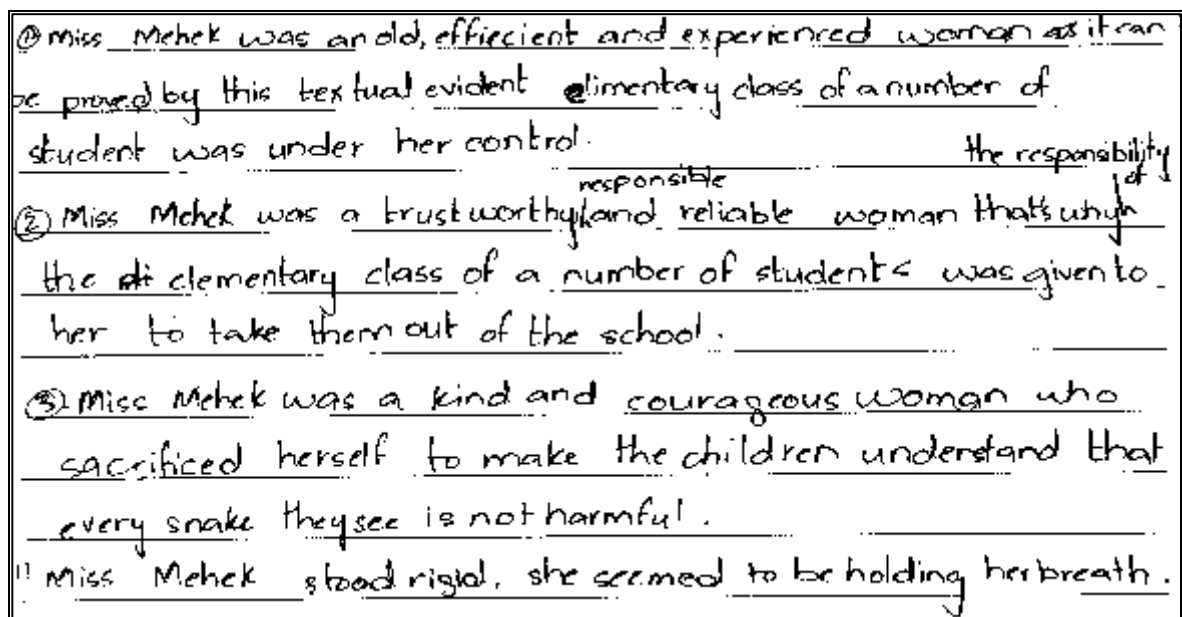 ① Miss Mehek was an old, effiecient and experienced woman as it can
be proved by this textual evident elimentary class of a number of
student was under her control.
the responsibility
responsible of
② Miss Mehek was a trustworthy, and reliable woman that's why
the elementary class of a number of students was given to
her to take them out of the school.
③ Miss Mehek was a kind and courageous woman who
sacrificed herself to make the children understand that
every snake they see is not harmful.
" Miss Mehek stood rigid, she seemed to be holding her breath.